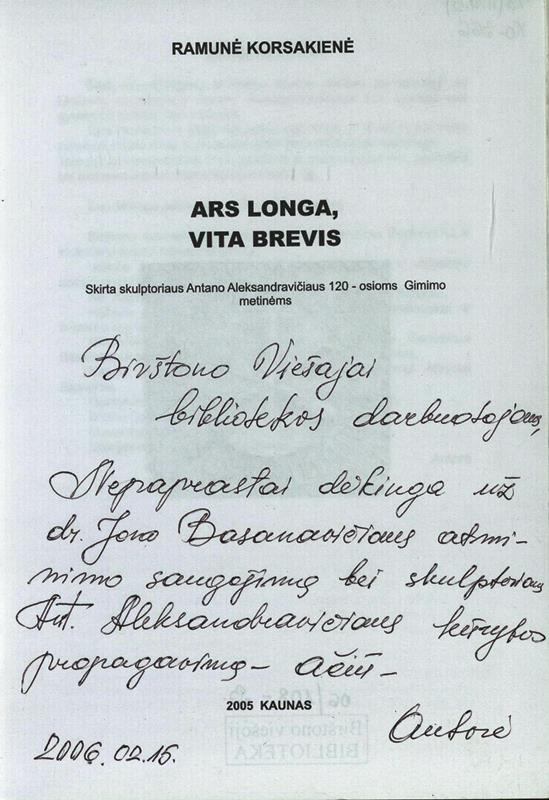 RAMUNĖ KORSAKIENĖ
ARS LONGA,
VITA BREVIS
Skirta skulptoriaus Antano Aleksandravičiaus 120 - osioms Gimimo
metinėms
Birštono Viešajai
bibliotekos darbuotojams,
Nepaprastai dėkinga už
dr. Jono Basanavičiaus atmi-
nimo saugojimą bei skulptoriaus
Ant. Aleksandravičiaus kūrybos
propagavimą - ačiū -
2005 KAUNAS
Autorė
2006. 02. 16.
Birštono viešoji
BIBLIOTEKA